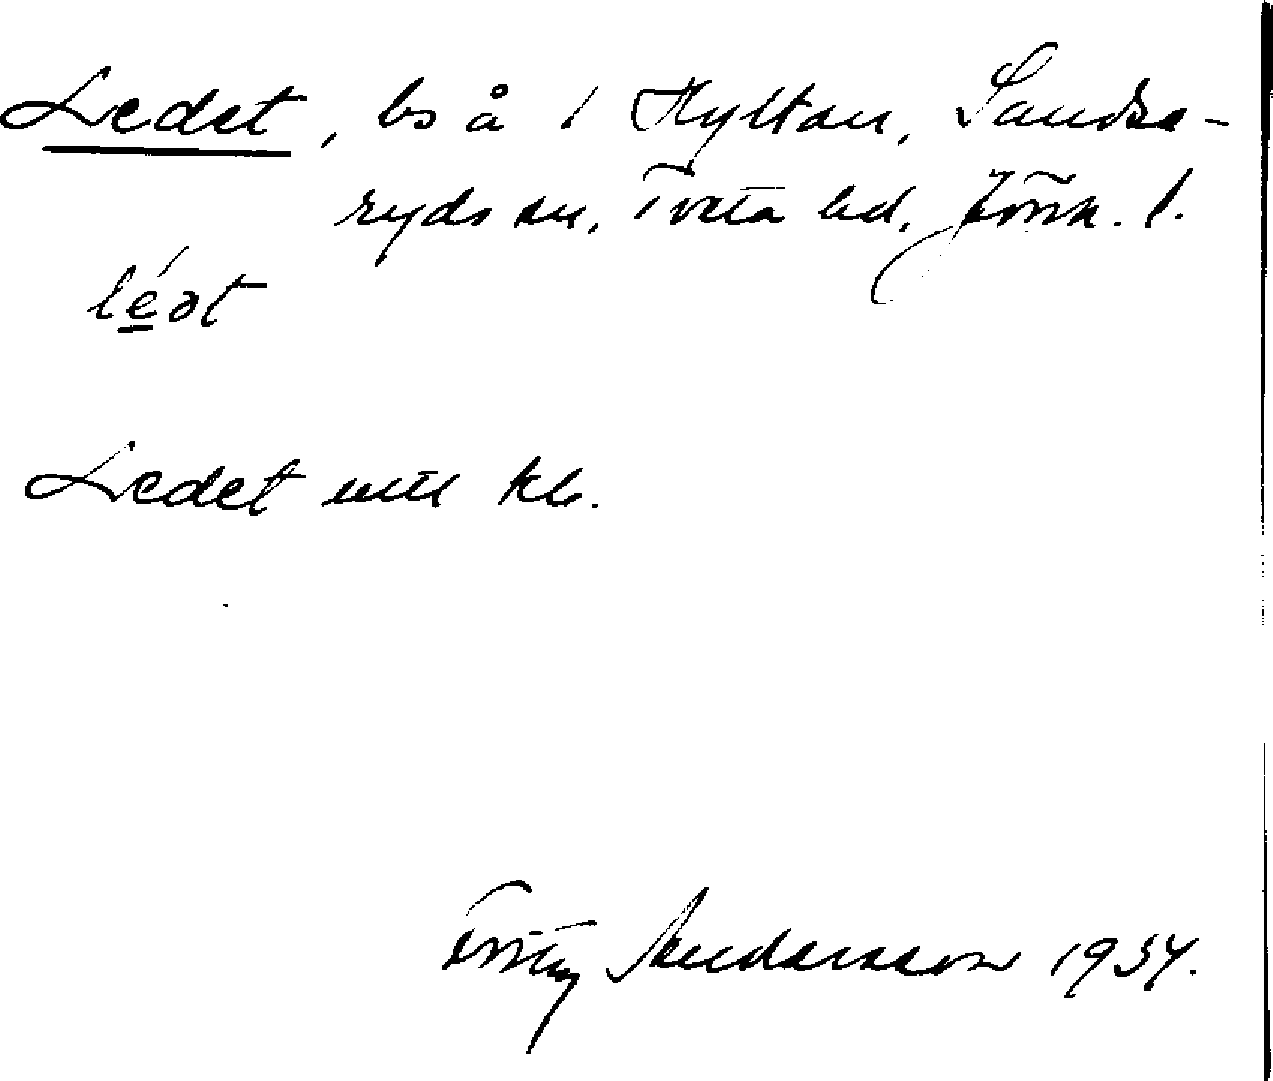 Ledet, bs å 1 Hyltan, Sandse-
ryds sn, Tveta hd, Jönk. l.
lé̱ət
Ledet utt kb.
Fritz Andersson 1934.